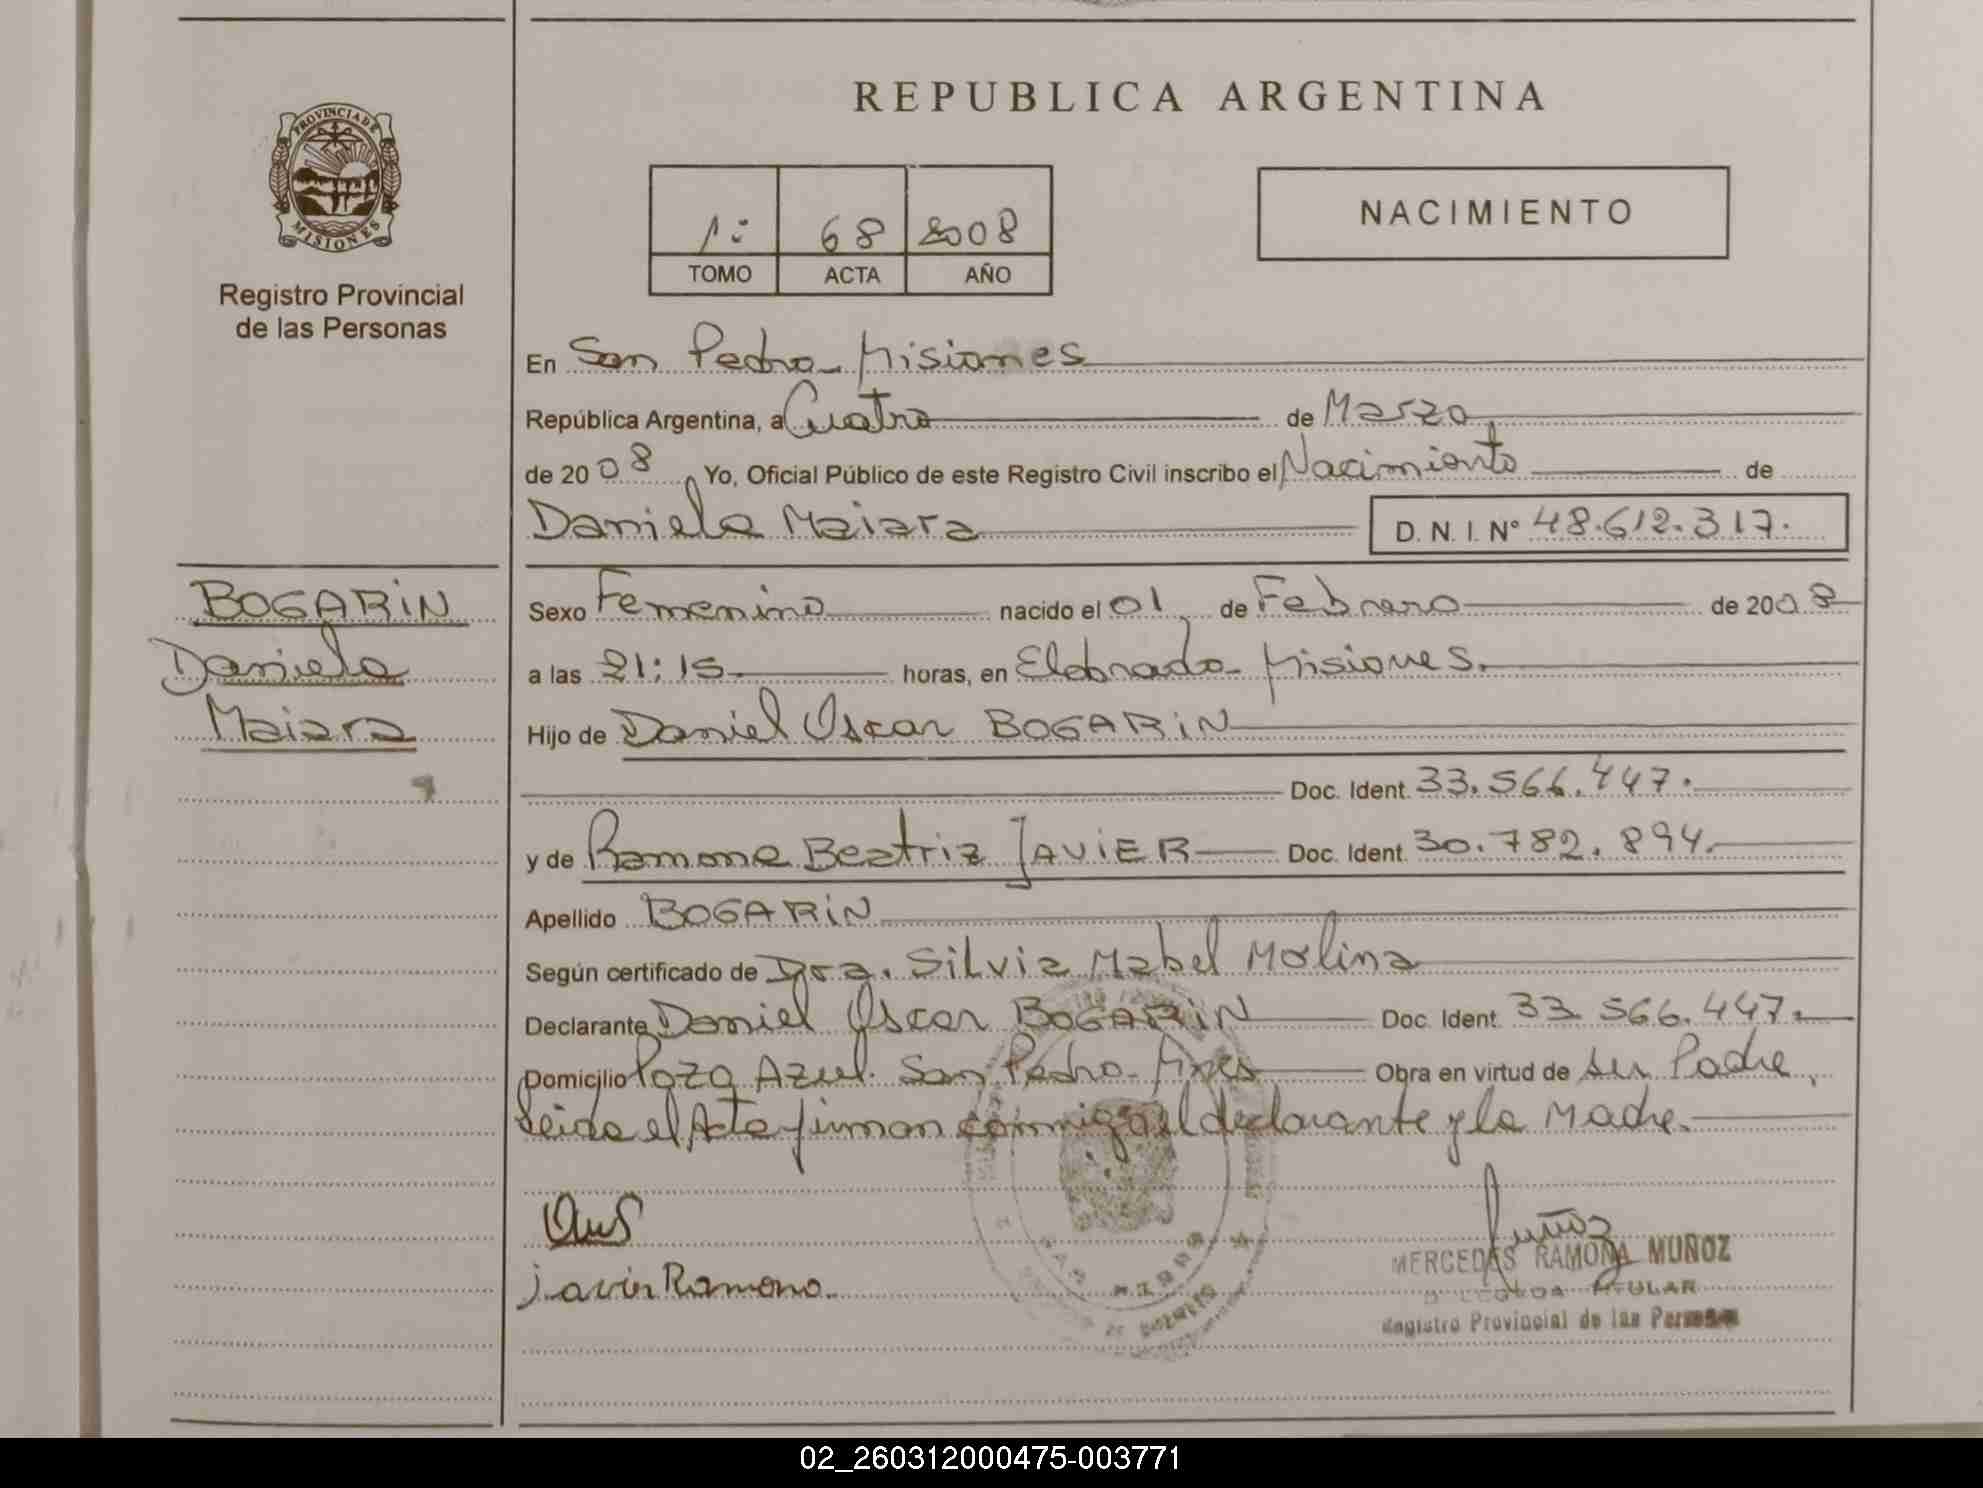 PROVINCIA DE
MISIONES
Registro Provincial
de las Personas
REPUBLICA ARGENTINA
1º 68 2008
TOMO ACTA AÑO
NACIMIENTO
En San Pedro - Misiones
República Argentina, a Cuatro de Marzo
de 2008 Yo, Oficial Público de este Registro Civil inscribo el Nacimiento de
Daniela Maiara D. N. I. Nº 48.612.317.
BOGARIN
Daniela
Maiara
Sexo Femenino nacido el 01 de Febrero de 2008
a las 21:15 horas, en Eldorado - Misiones.
Hijo de Daniel Oscar BOGARIN
Doc. Ident. 33.566.447.
y de Ramona Beatriz JAVIER Doc. Ident. 30.782.894.
Apellido BOGARIN
Según certificado de Dra. Silvia Mabel Molina
Declarante Daniel Oscar BOGARIN Doc. Ident. 33.566.447.
Domicilio Pozo Azul. San Pedro - Mnes Obra en virtud de ser Padre,
Leida el Acta firman conmigo el declarante y la Madre.
Javier Ramona.
Muñoz
MERCEDES RAMONA MUÑOZ
TITULAR
Registro Provincial de las Personas
SAN PEDRO
02_260312000475-003771